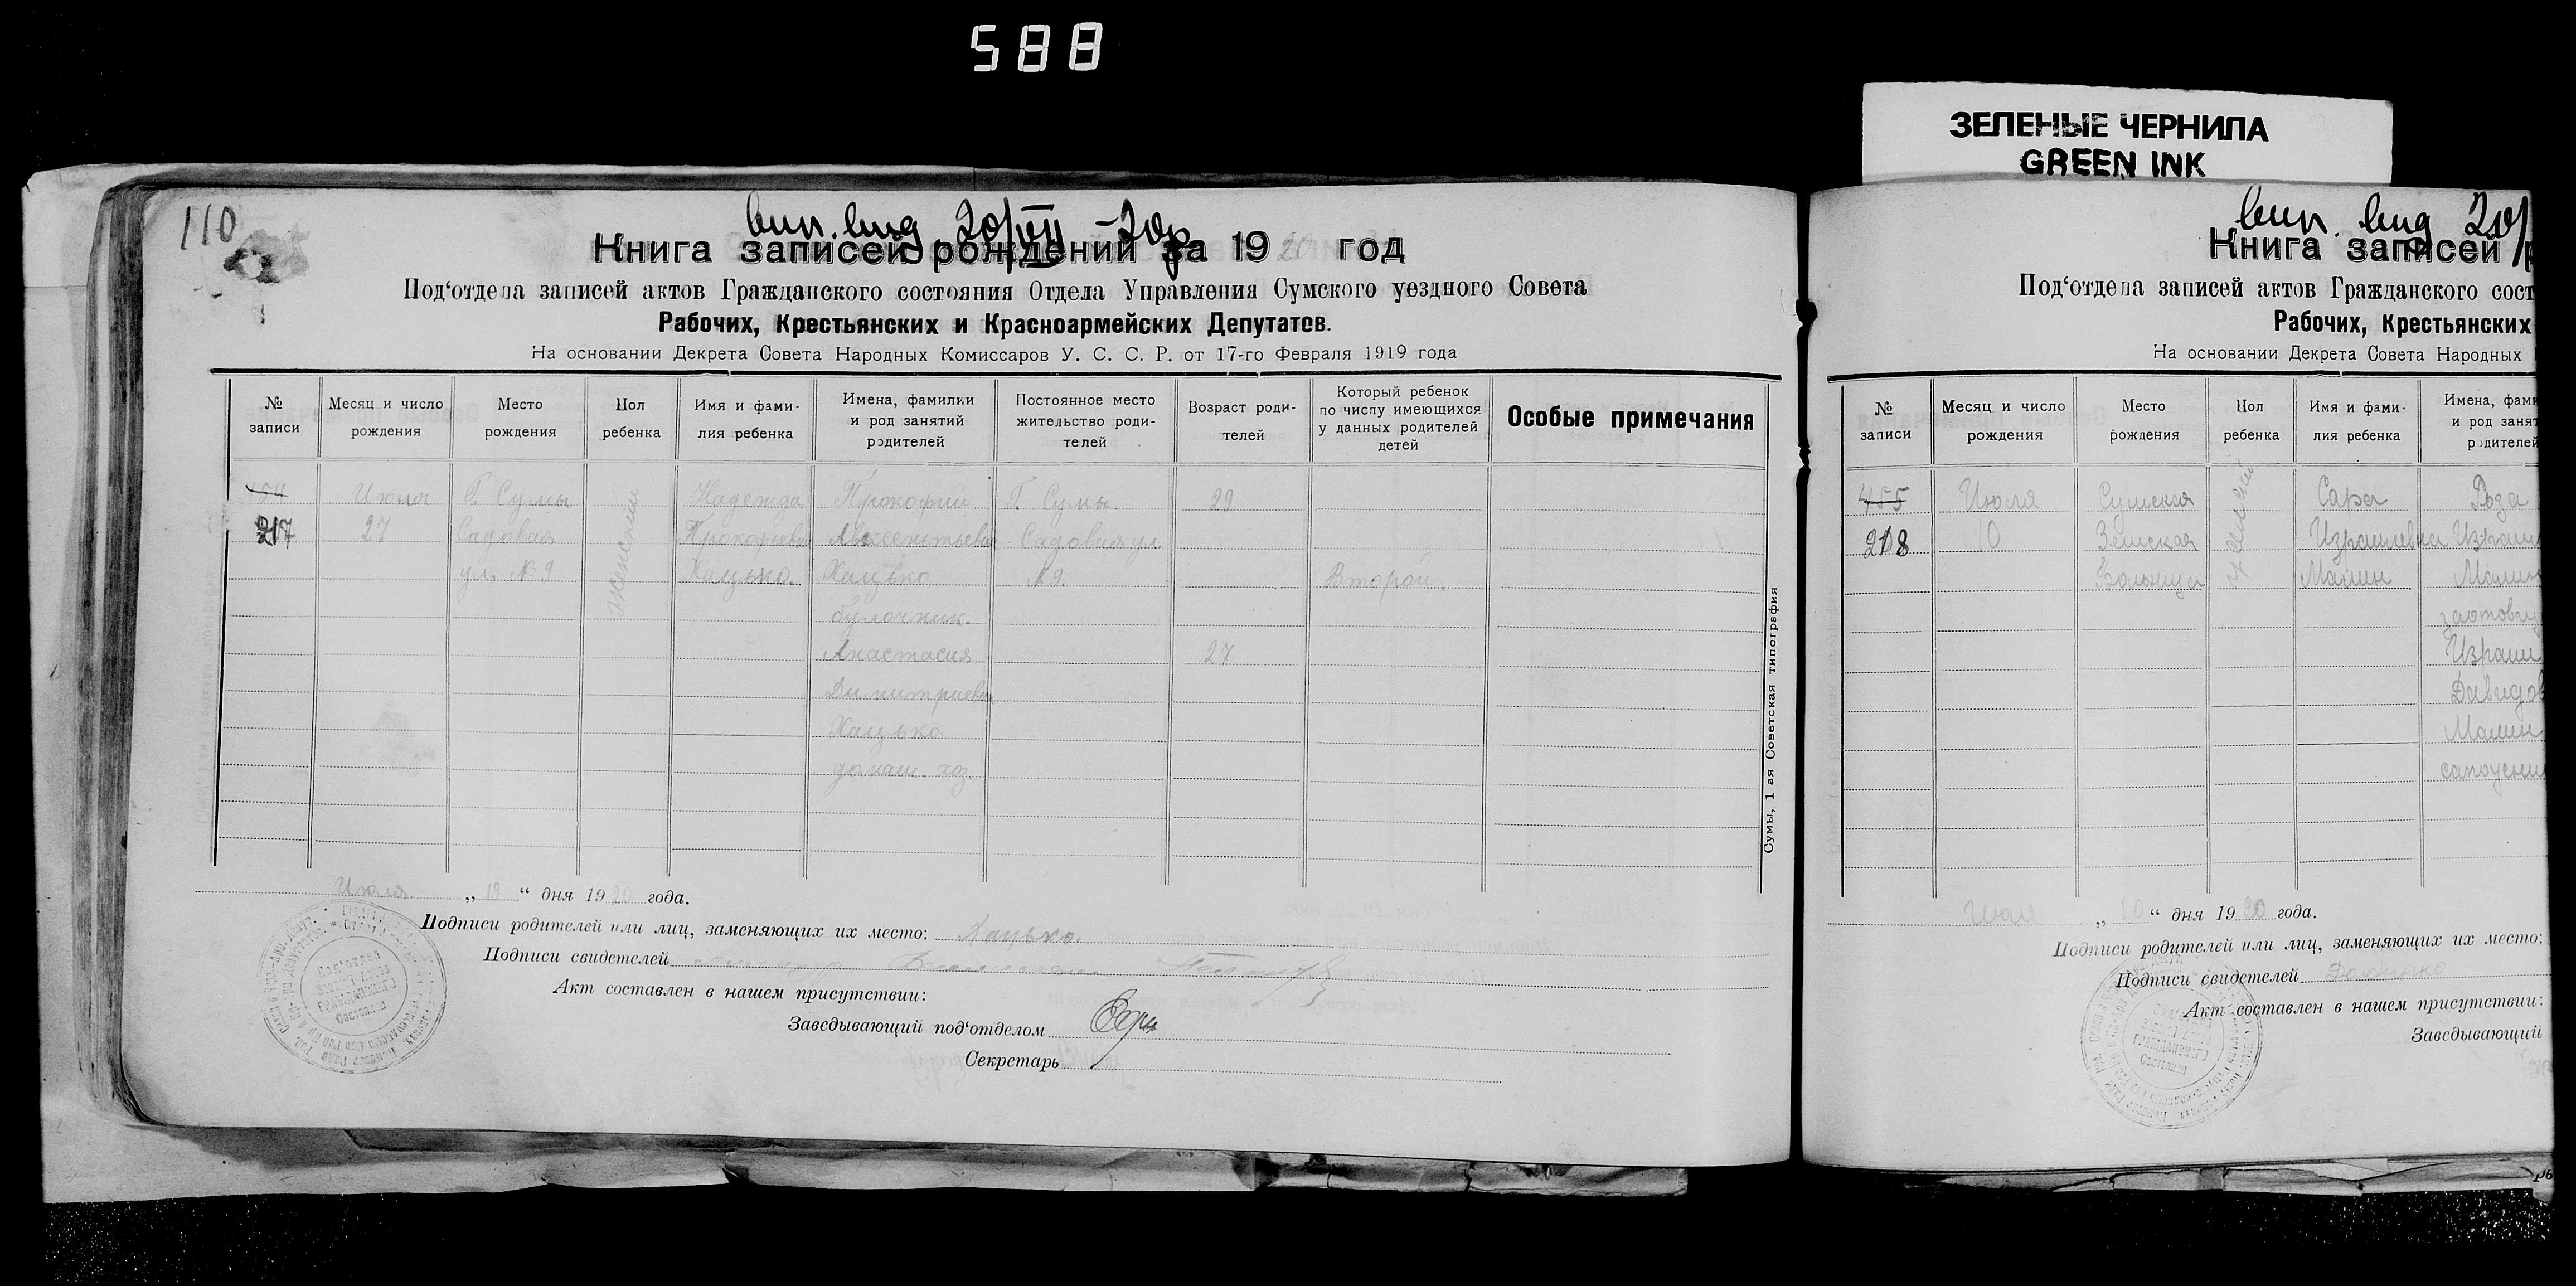 588
ЗЕЛЕНЫЕ ЧЕРНИЛА
GREEN INK
110
вип. вид 20/VII -20р
Книга записей рождений за 1920 год
Под‘отдела записей актов Гражданского состояния Отдела Управления Сумского уездного Совета
Рабочих, Крестьянских и Красноармейских Депутатов.
На основании Декрета Совета Народных Комиссаров У. С. С. Р. от 17-го Февраля 1919 года
№ записи
Месяц и число рождения
Место рождения
Пол ребенка
Имя и фами-
лия ребенка
Имена, фамилии
и род занятий
родителей
Постоянное место
жительство роди-
телей
Возраст роди-
телей
Который ребенок
по числу имеющихся
у данных родителей
детей
Особые примечания
454
217
Июня
27
Г. Сумы
Садовая
ул. №9
женский
Надежда
Прокофиевна
Хацько.
Прокофий
Авксентьевич
Хацько
булочник.
Анастасия
Димитриевна
Хацько
домаш. хоз.
Г. Сумы
Садовая ул
№9.
29
27
Второй.
Сумы, 1 ая Советская типография
Июля „ 19 “ дня 1920 года.
Подписи родителей или лиц, заменяющих их место: Хацько
Подписи свидетелей
Акт составлен в нашем присутствии:
Заведывающий под‘отделом
Секретарь
Под'отдел
Записей Актов
Гражданского
Состояния
вип. вид 20/
Книга записей р
Под‘отдела записей актов Гражданского сост
Рабочих, Крестьянских
На основании Декрета Совета Народных
№ записи
Месяц и число рождения
Место рождения
Пол ребенка
Имя и фами-
лия ребенка
Имена, фами
и род занят
родителей
455
218
Июля
10
Сумская
Земская
Больница
женский
Сара
Израилевна
Малин
Роза
Израил
Малин
Израил
Давидов
Малин
Июля „ 20 “ дня 1920 года.
Подписи родителей или лиц, заменяющих их место:
Подписи свидетелей
Акт составлен в нашем присутствии:
Заведывающий